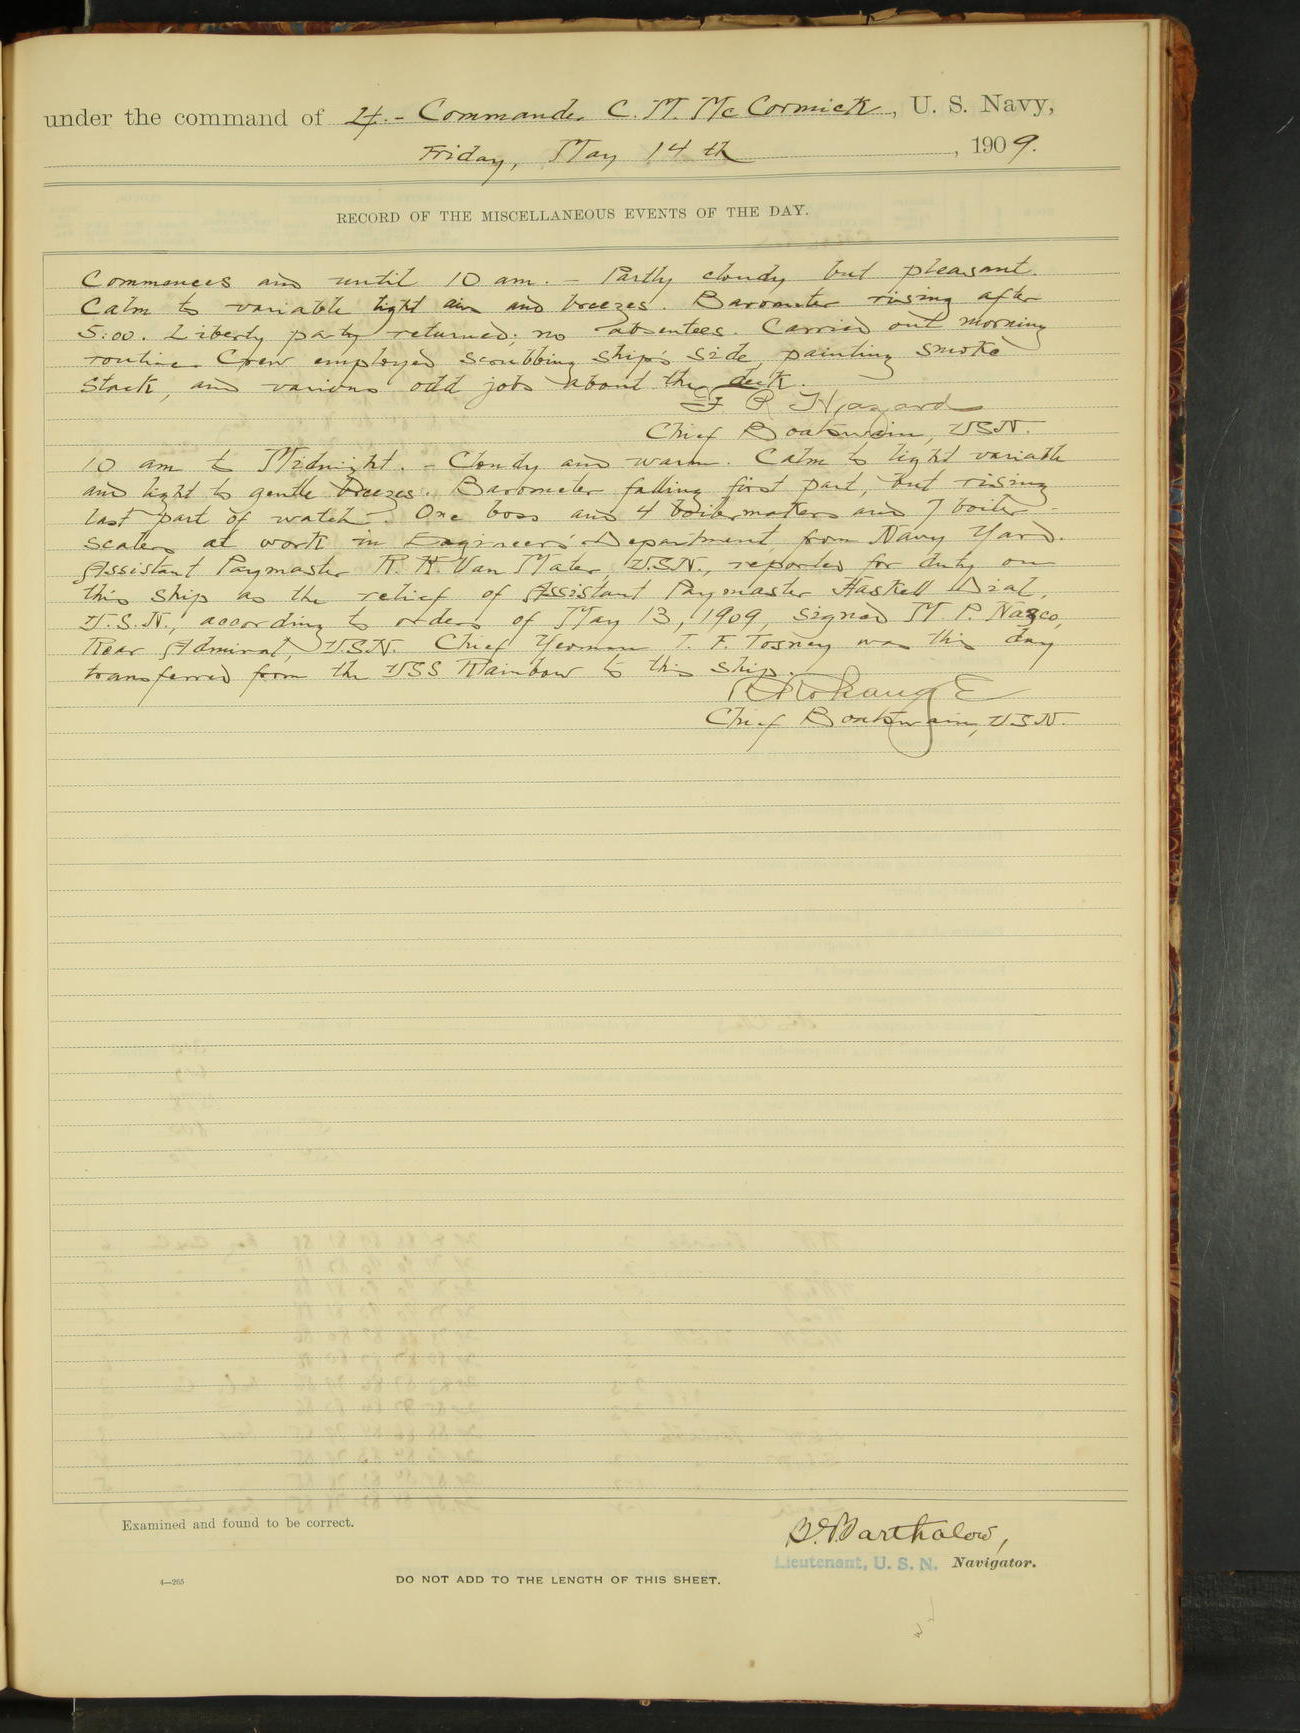 under the command of Lt.- Commander C. M. McCormick, U. S. Navy,
Friday, May 14th, 1909.
RECORD OF THE MISCELLANEOUS EVENTS OF THE DAY.
Commences and until 10 am. - Partly cloudy but pleasant.
Calm to variable light airs and breezes. Barometer rising after
5:00. Liberty party returned; no absentees. Carried out morning
routine. Crew employed scrubbing ship's side, painting smoke
stack, and various odd jobs about the deck.
F R Hazard
Chief Boatswain, USN.
10 am to Midnight. - Cloudy and warm. Calm to light variable
and light to gentle breezes. Barometer falling first part, but rising
last part of watch. One boss and 4 boilermakers and 7 boiler-
scalers at work in Engineers' Department from Navy Yard.
Assistant Paymaster R. K. Van Mater, U.S.N., reported for duty on
this ship as the relief of Assistant Paymaster Haskell Dial,
U.S.N., according to orders of May 13, 1909, signed M. P. Nazco,
Rear Admiral, U.S.N. Chief Yeoman T. F. Tosney was this day
transferred from the USS Rainbow to this ship.
Chief Boatswain, U.S.N.
Examined and found to be correct.
Barthalow,
Lieutenant, U. S. N. Navigator.
4—265
DO NOT ADD TO THE LENGTH OF THIS SHEET.